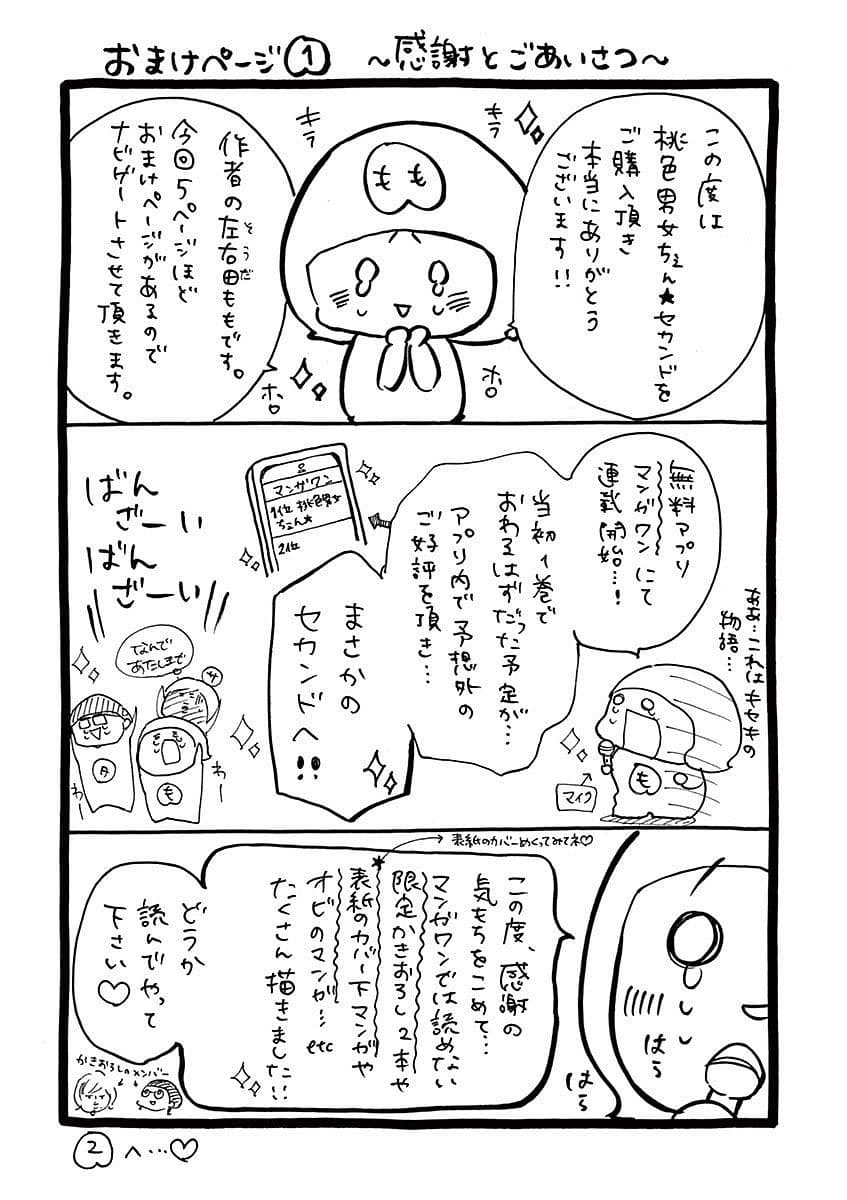 おまけページ1 ～感謝とごあいさつ～
この度は
桃色男女ちぇん★セカンドを
ご購入頂き
本当にありがとう
ございます!!
キラ
キラ
もも
ホロ
ホロ
作者の左右田ももです。
そうだ
今回5ページほど
おまけページがあるので
ナビゲートさせて頂きます。
無料アプリ
マンガワンにて
連載開始…!
ああ…これはキセキの
物語…
マイク
も
当初1巻で
おわるはずだった予定が…
アプリ内で予想外の
ご好評を頂き…
マンガワン
1位 桃色男女
ちぇん★
2位
まさかの
セカンドへ!!
ばん
ざーい
ばん
ざーい
なんで
あたしまで
サ
タ
も
わー
わー
表紙のカバーめくってみてネ♡
この度、感謝の
気もちをこめて…
マンガワンでは読めない
限定かきおろし2本や
*表紙のカバー下マンガや
オビのマンガ…etc
たくさん描きました!!
はら
はら
どうか
読んでやって
下さい♡
かきおろしのメンバー
2へ…♡